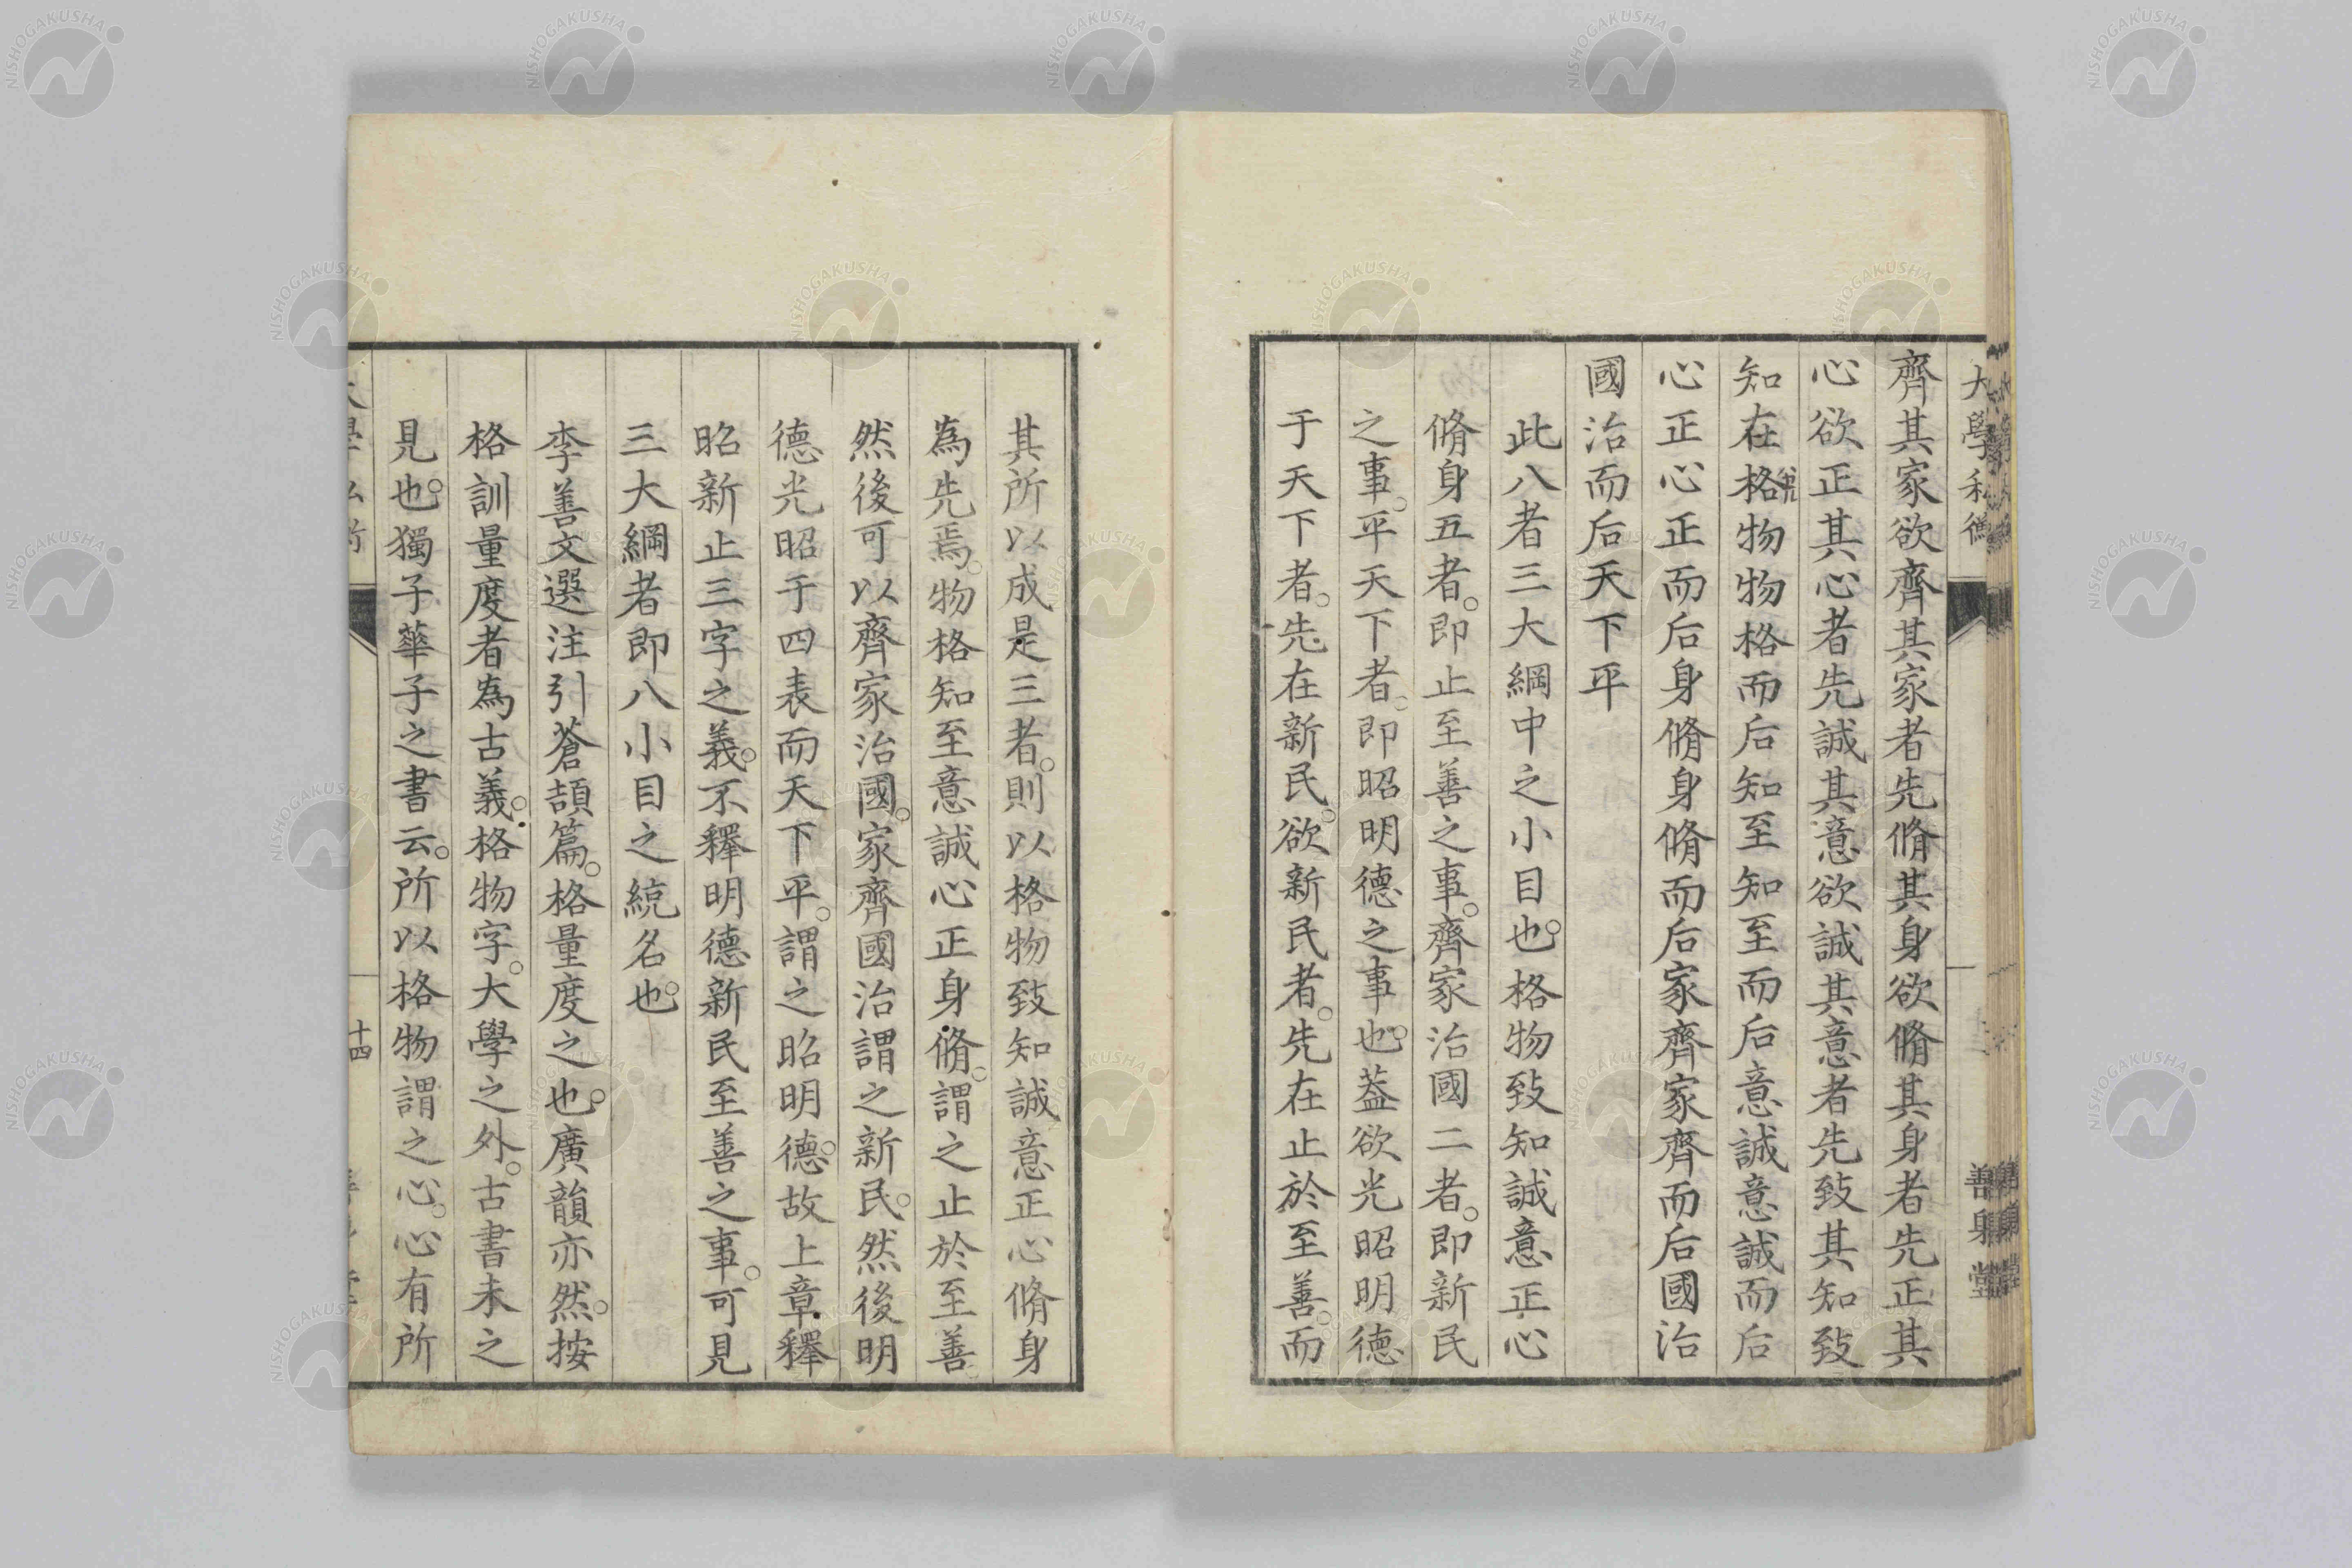 大學私衡
善身堂
齊其家欲齊其家者先脩其身欲脩其身者先正其
心欲正其心者先誠其意欲誠其意者先致其知致
知在格物物格而后知至知至而后意誠意誠而后
心正心正而后身脩身脩而后家齊家齊而后國治
國治而后天下平
此八者三大綱中之小目也。格物致知誠意正心
脩身五者。即止至善之事。齊家治國二者。即新民
之事。平天下者。即昭明德之事也。蓋欲光昭明德
于天下者。先在新民。欲新民者。先在止於至善。而
其所以成是三者。則以格物致知誠意正心脩身
為先焉。物格知至意誠心正身脩。謂之止於至善
然後可以齊家治國。家齊國治謂之新民。然後明
德光昭于四表而天下平。謂之昭明德。故上章釋
昭新止三字之義。不釋明德新民至善之事。可見
三大綱者即八小目之統名也。
李善文選注引蒼頡篇。格量度之也。廣韻亦然。按
格訓量度者為古義。格物字。大學之外。古書未之
見也。獨子華子之書云。所以格物謂之心。心有所
十四
NISHOGAKUSHA